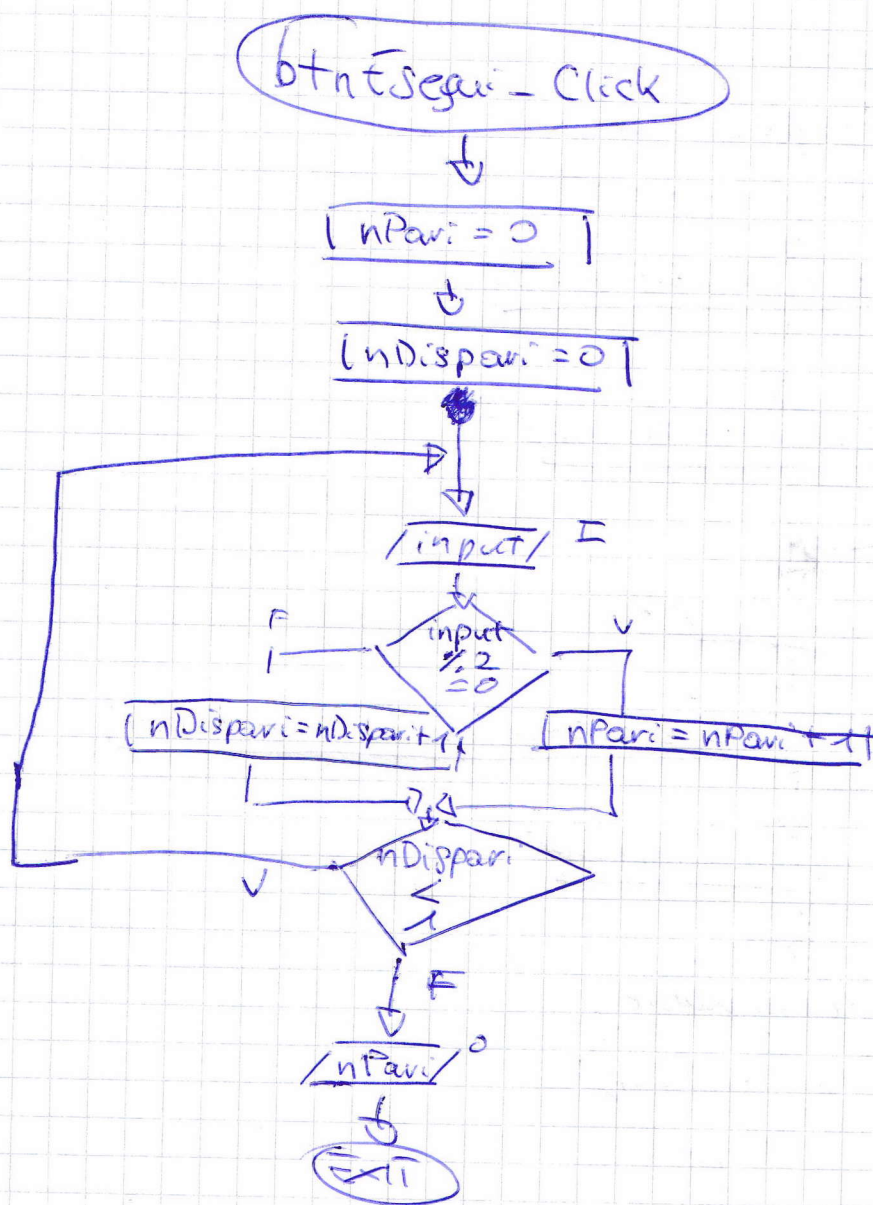 btnEsegui_Click
nPari = 0
nDispari = 0
input I
F
input
% 2
= 0
V
nDispari = nDispari + 1
nPari = nPari + 1
V
nDispari
<
1
F
nPari O
EXIT